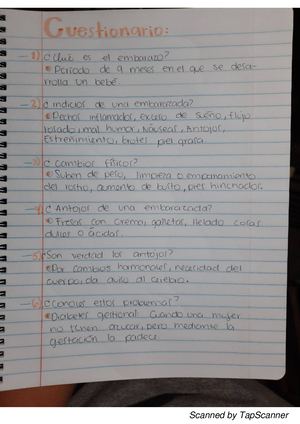 Cuestionario:
1) ¿Qué es el embarazo?
Periodo de 9 meses en el que se desa-
rrolla un bebé.
2) ¿Indicios de una embarazada?
Pechos inflamados, exceso de sueño, flujo
malhumor, Náuseas, Antojos,
Estreñimiento, brotes piel grasa.
3) ¿Cambios físicos?
Suben de peso, limpieza o empañamiento
del rostro, aumento de busto, pies hinchados.
4) ¿Antojos de una embarazada?
Fresas con crema, galletas, Helado cosas
dulces o ácidas.
5) ¿Son verdad los antojos?
Por cambios hormonales, necesidad del
cuerpo, da aviso al cerebro.
6) ¿Conoces estos problemas?
Diabetes gestional. Cuando una mujer
no tienen azucar, pero mediante la
gestación la padece.
Scanned by TapScanner